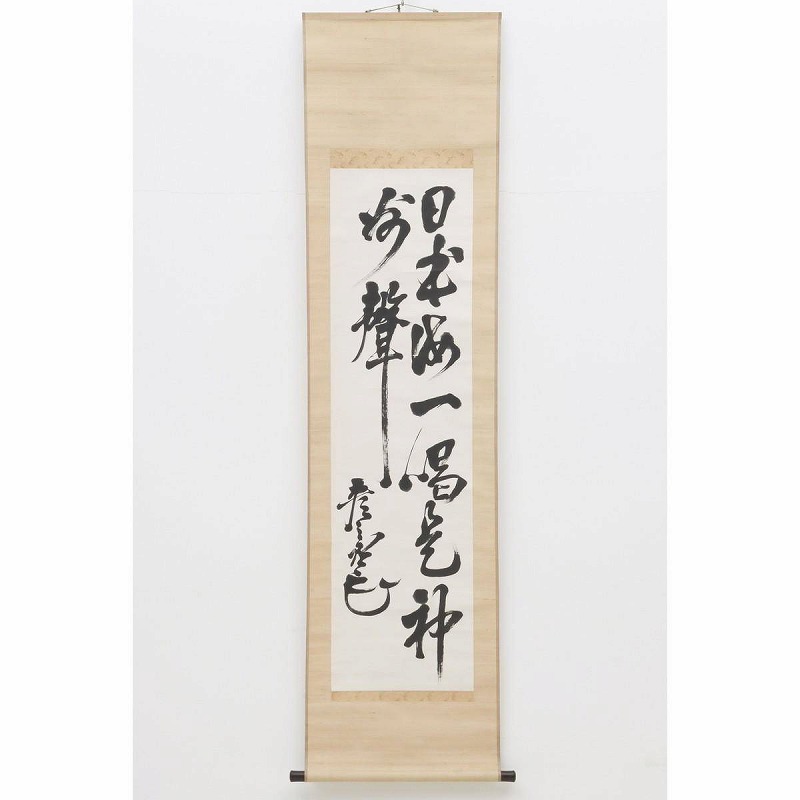 日本海一唱是神
州聲